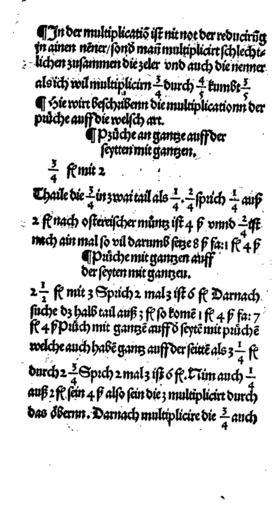 ¶In der multiplicatiõ ist nit not der reducirũg
in ainen nẽner/sonď mañ multiplicirt schlecht-
lichen zusammen die zeler vnd auch die nenner
als ich wil multiplicirn 3/4 durch 4/5 kumbt 3/5
¶ Hie wirt beschribenn die multiplicationn der
prüche auff die welsch art.
¶ Prüche an gantze auff der
seytten mit gantzen.
3/4 fl mit 2
Thaile die 3/4 in zwai tail als 1/4 . 2/4 sprich 1/4 auß
2 fl nach ostereischer müntz ist 4 ß vnnd 2/4 ist
noch ain mal so vil darumb setze 8 ß fa: 1 fl 4 ß
¶ Prüche mit gantzen auff
der seyten mit gantzen.
2 1/2 fl mit 3 Sprich 2 mal 3 ist 6 fl Darnach
suche dz halb tail auß 3 fl so komẽ 1 fl 4 ß fa: 7
fl 4 ß Prüch mit gantzẽ auff ď seytẽ mit prüchẽ
welche auch habẽ gantz auff der seittẽ als 3 1/4 fl
durch 2 3/4 Sprich 2 mal 3 ist 6 fl. Nim auch 1/4
auß 2 fl sein 4 ß also sein die 3 multiplicirt durch
das öbernn. Darnach multiplicire die 3/4 auch